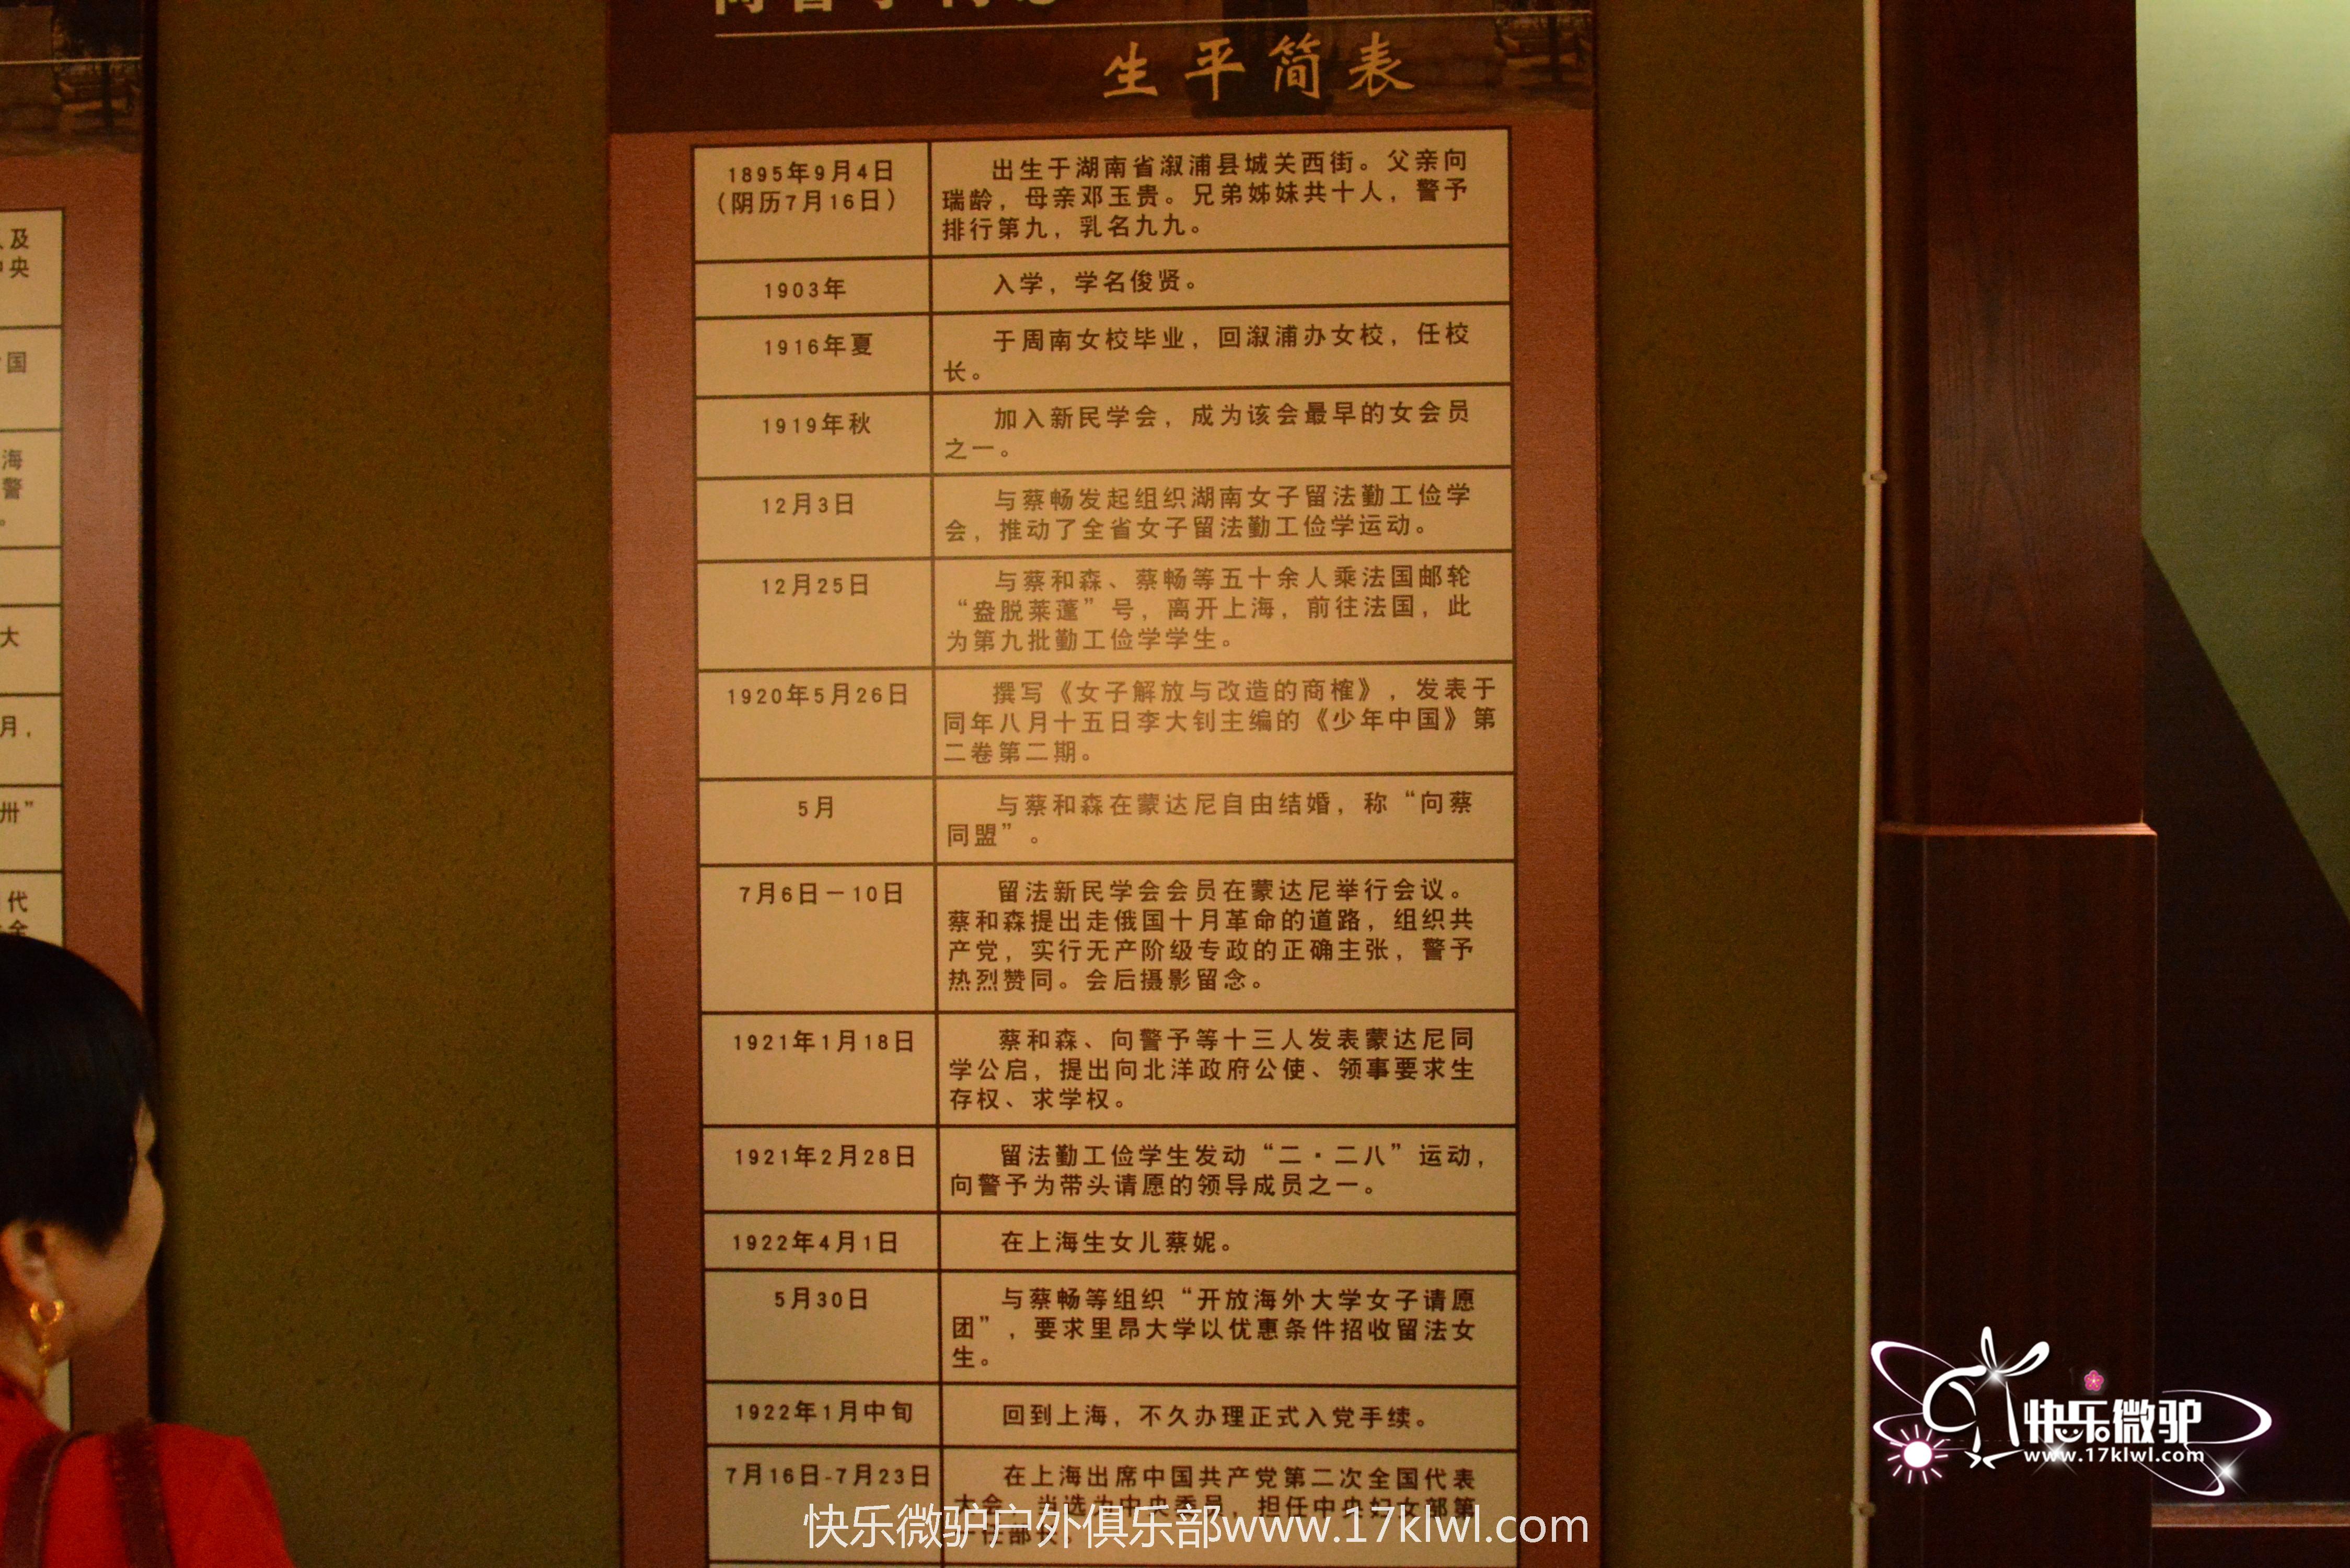 生平简表
1895年9月4日
(阴历7月16日)
出生于湖南省溆浦县城关西街。父亲向
瑞龄，母亲邓玉贵。兄弟姊妹共十人，警予
排行第九，乳名九九。
1903年
入学，学名俊贤。
1916年夏
于周南女校毕业，回溆浦办女校，任校
长。
1919年秋
加入新民学会，成为该会最早的女会员
之一。
12月3日
与蔡畅发起组织湖南女子留法勤工俭学
会，推动了全省女子留法勤工俭学运动。
12月25日
与蔡和森、蔡畅等五十余人乘法国邮轮
“盎脱莱蓬”号，离开上海，前往法国，此
为第九批勤工俭学学生。
1920年5月26日
撰写《女子解放与改造的商榷》，发表于
同年八月十五日李大钊主编的《少年中国》第
二卷第二期。
5月
与蔡和森在蒙达尼自由结婚，称“向蔡
同盟”。
7月6日－10日
留法新民学会会员在蒙达尼举行会议。
蔡和森提出走俄国十月革命的道路，组织共
产党，实行无产阶级专政的正确主张，警予
热烈赞同。会后摄影留念。
1921年1月18日
蔡和森、向警予等十三人发表蒙达尼同
学公启，提出向北洋政府公使、领事要求生
存权、求学权。
1921年2月28日
留法勤工俭学生发动“二·二八”运动，
向警予为带头请愿的领导成员之一。
1922年4月1日
在上海生女儿蔡妮。
5月30日
与蔡畅等组织“开放海外大学女子请愿
团”，要求里昂大学以优惠条件招收留法女
生。
1922年1月中旬
回到上海，不久办理正式入党手续。
7月16日-7月23日
在上海出席中国共产党第二次全国代表
大会，当选为中央委员，担任中央妇女部第
一任部长。
及
央
国
海
警
。
大
月，
卅”
代
全
快乐微驴
www.17klwl.com
快乐微驴户外俱乐部www.17klwl.com